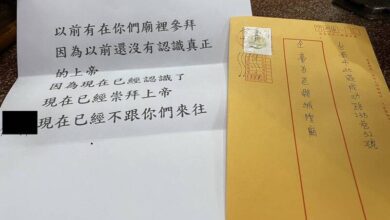 以前有在你們廟裡參拜
因為以前還沒有認識真正
的上帝
因為現在已經認識了
現在已經崇拜上帝
現在已經不跟你們來往
城隍廟